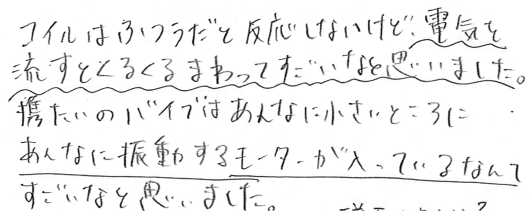 コイルはふつうだと反応しないけど、電気を
流すとくるくるまわってすごいなと思いました。
携たいのバイブはあんなに小さいところに
あんなに振動するモーターが入っているなんて
すごいなと思いました。